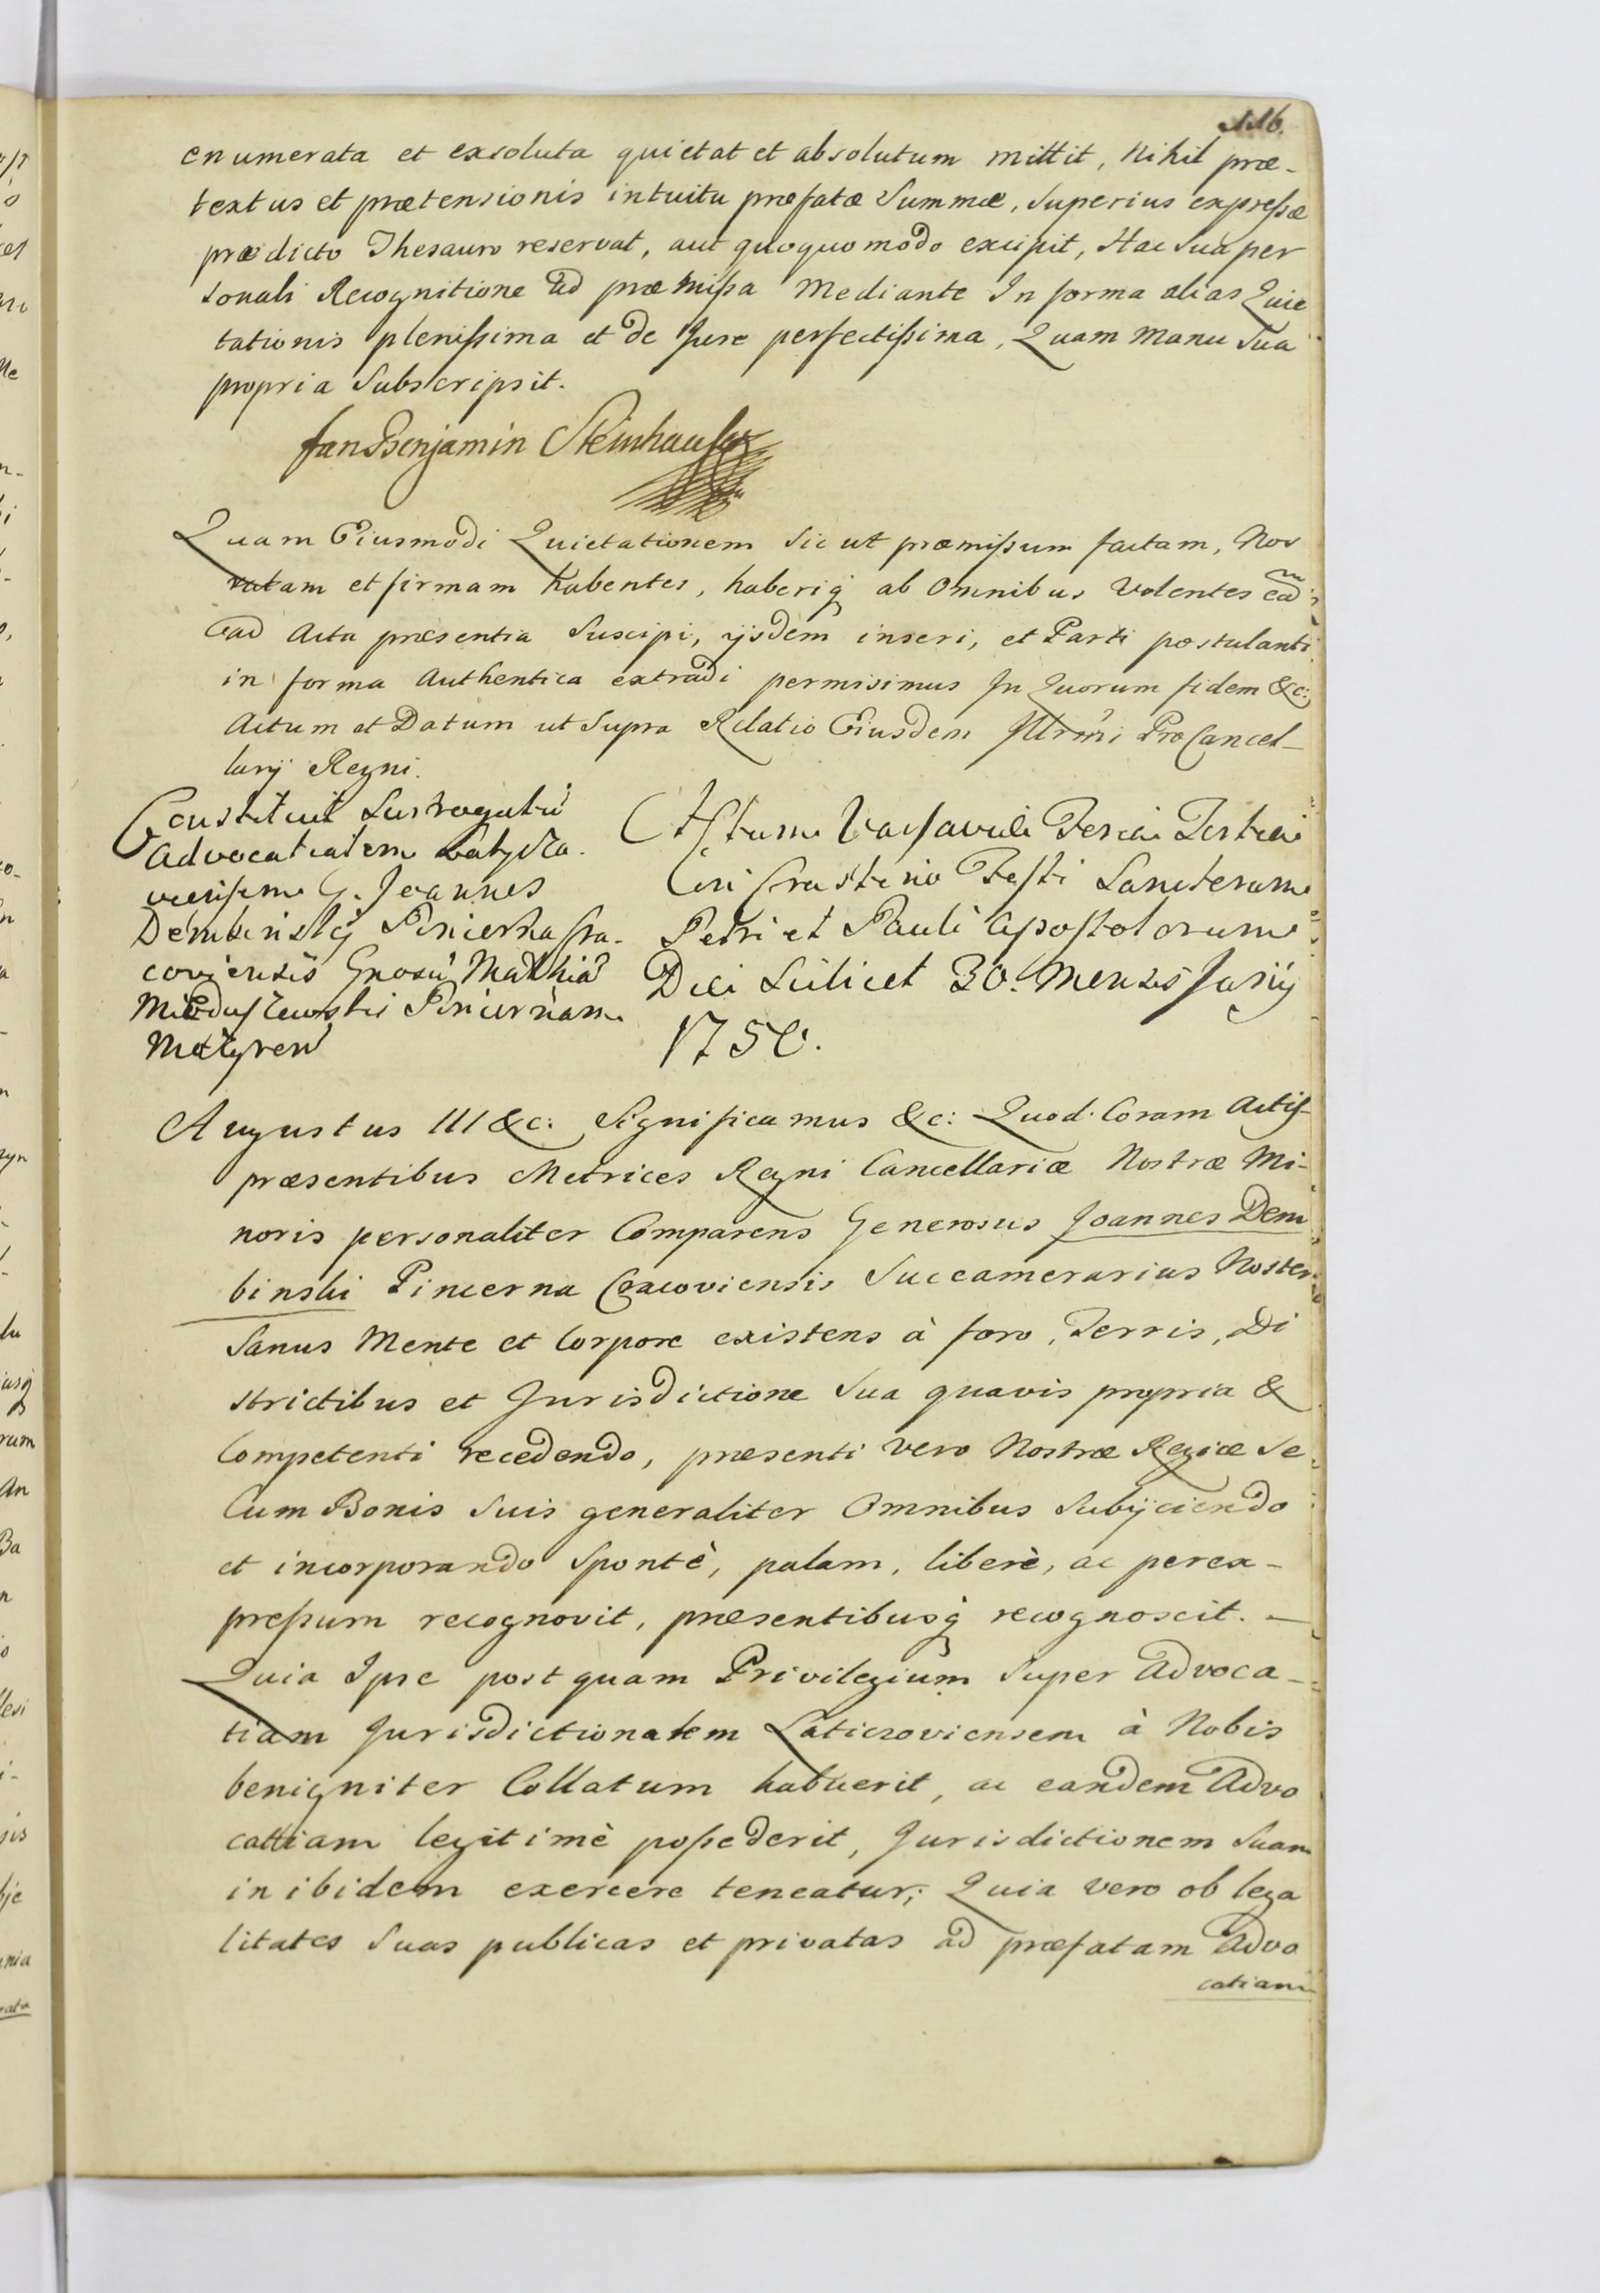 116.
enumerata et exsoluta quietat et absolutum mittit, Nihil præ-
textus et prætensionis intuitu præfatæ Summæ, Superius expressæ
prædicto Thesauro reservat, aut quoquo modo excipit, Hac Sua per
sonali Recognitione ad præmissa Mediante In forma alias Quie
tationis plenissima et de Jure perfectissima, Quam Manu Sua
propria Subscripsit.
Jan Benjamin Steinhauser
Quam Eiusmodi Quietationem Sic ut præmissum factam, Nos
ratam et firmam habentes, haberiq ab Omnibus Volentes eam
ad Acta præsentia Suscipi, ijsdem inseri, et Parti postulanti
in forma Authentica extradi permisimus In Quorum fidem &c:
Actum et Datum ut Supra Relatio Eiusdem Illrmi ProCancel-
larij Regni.
Constituit Surrogatū
Advocatialem
G. Joannes
Dembinskij Pincerna Cra-
coviensis Gnosū Mathiā
Pincernam
Actum Varsaviæ Feria Tertia
Crastino Festi Sanctorum
Petri et Pauli Apostolorum
Die Scilicet 30. Mensis Junij
1750.
Augustus III &c: Significamus &c: Quod Coram Actis
præsentibus Metrices Regni Cancellariæ Nostræ Mi-
noris personaliter Comparens Generosus Joannes Dem
binski Pincerna Cracoviensis Succamerarius Noster
Sanus Mente et Corpore existens à foro, Terris, Di
strictibus et Jurisdictione Sua quavis propria &
Competenti recedendo, præsenti vero Nostræ Regiæ Se
Cum Bonis Suis generaliter Omnibus Subijciendo
et incorporando Spontè, palam, liberè, ac perex-
pressum recognovit, præsentibusq recognoscit. —
Quia Ipse postquam Privilegium Super Advoca-
tiam Jurisdictionalem Laticzoviensem à Nobis
benigniter Collatum habuerit, ac eandem Advo
cattiam legitimè possederit, Jurisdictionem Suam
inibidem exercere teneatur; Quia vero ob lega
litates Suas publicas et privatas ad præfatam Advo
catiam